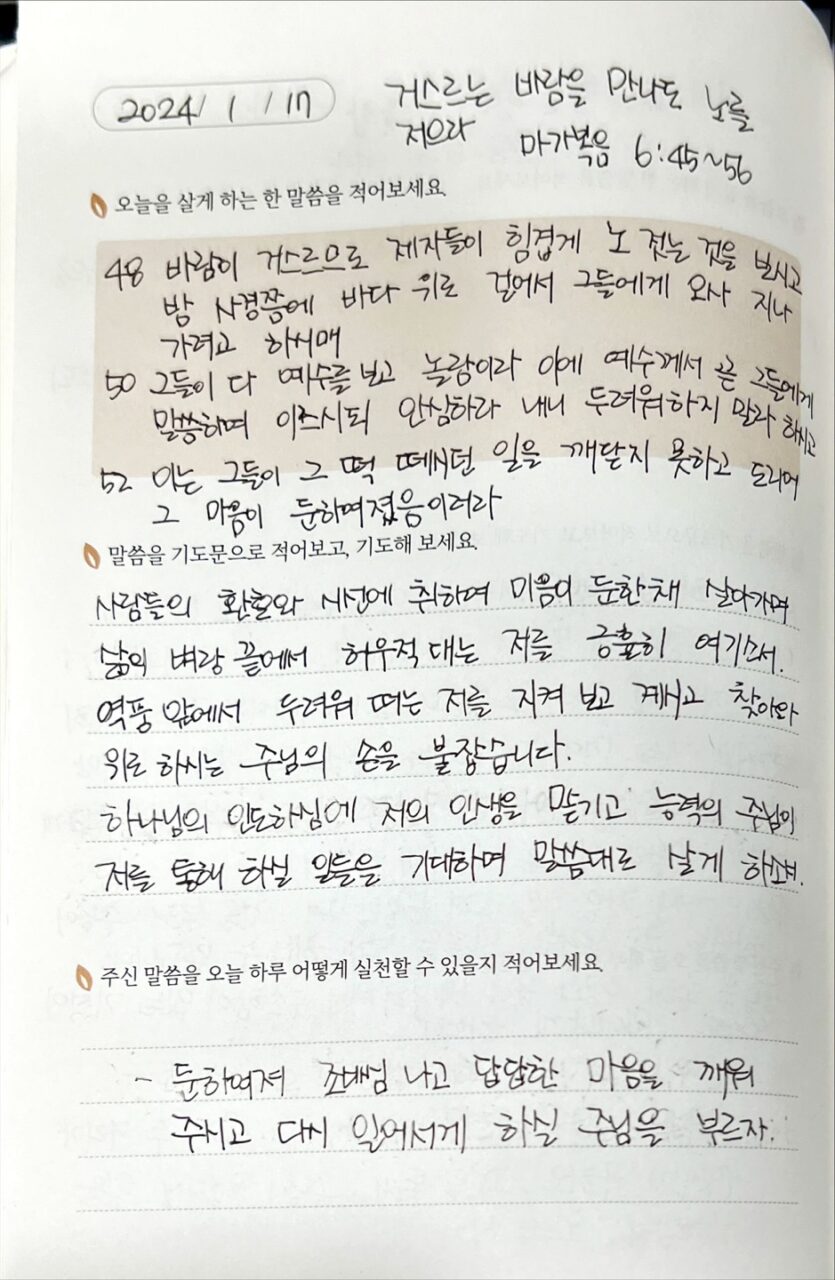 2024/ 1 / 17
거스르는 바람을 만나도 노를
저으라 마가복음 6:45~56
오늘을 살게 하는 한 말씀을 적어보세요.
48 바람이 거스르므로 제자들이 힘겹게 노 젓는 것을 보시고
밤 사경쯤에 바다 위로 걸어서 그들에게 오사 지나
가려고 하시매
50 그들이 다 예수를 보고 놀람이라 이에 예수께서 곧 그들에게
말씀하며 이르시되 안심하라 내니 두려워하지 말라 하시고
52 이는 그들이 그 떡 떼시던 일을 깨닫지 못하고 도리어
그 마음이 둔하여졌음이러라
말씀을 기도문으로 적어보고, 기도해 보세요.
사람들의 환호와 시선에 취하여 마음이 둔한채 살아가며
삶의 벼랑 끝에서 허우적 대는 저를 긍휼히 여기소서.
역풍 앞에서 두려워 떠는 저를 지켜 보고 계시고 찾아와
위로 하시는 주님의 손을 붙잡습니다.
하나님의 인도하심에 저의 인생을 맡기고 능력의 주님이
저를 통해 하실 일들을 기대하며 말씀대로 살게 하소서.
주신 말씀을 오늘 하루 어떻게 실천할 수 있을지 적어보세요.
- 둔하여져 나고 답답한 마음을 깨워
주시고 다시 일어서게 하실 주님을 부르자.